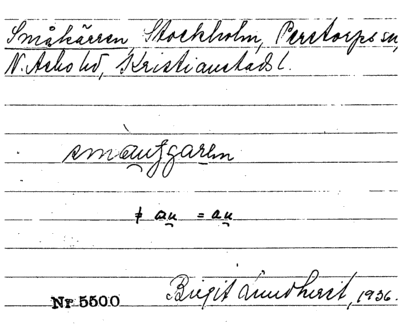 Småkärren, Stockholm, Perstorps sn,
N. Åsbo hd, Kristianstads l.
≠ au̯ = au̯
Birgit Lundqvist, 1936.
Nr 5500